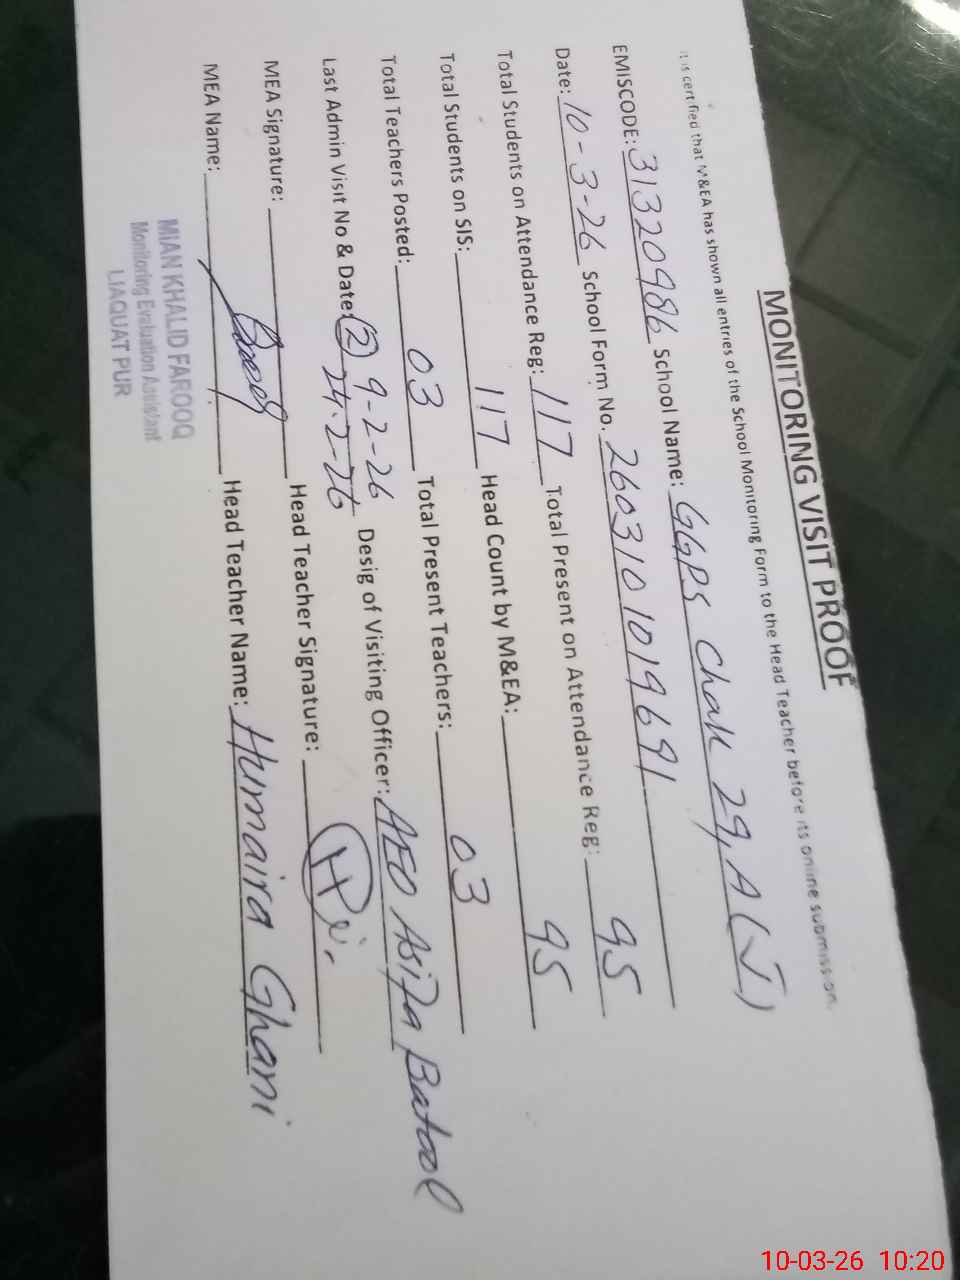 MONITORING VISIT PROOF
It is certified that M&EA has shown all entries of the School Monitoring Form to the Head Teacher before its online submission.
EMISCODE: 31320986 School Name: GGPS Chak 29, A (J)
Date: 10-3-26 School Form No. 2603101019691
Total Students on Attendance Reg: 117 Total Present on Attendance Reg: 95
Total Students on SIS: 117 Head Count by M&EA: 95
Total Teachers Posted: 03 Total Present Teachers: 03
Last Admin Visit No & Date: (2) 9-2-26 24-2-26 Desig of Visiting Officer: AEO Asifa Batool
MEA Signature: Head Teacher Signature:
MEA Name: Head Teacher Name: Humaira Ghani
MIAN KHALID FAROOQ
Monitoring Evaluation Assistant
LIAQUAT PUR
10-03-26 10:20